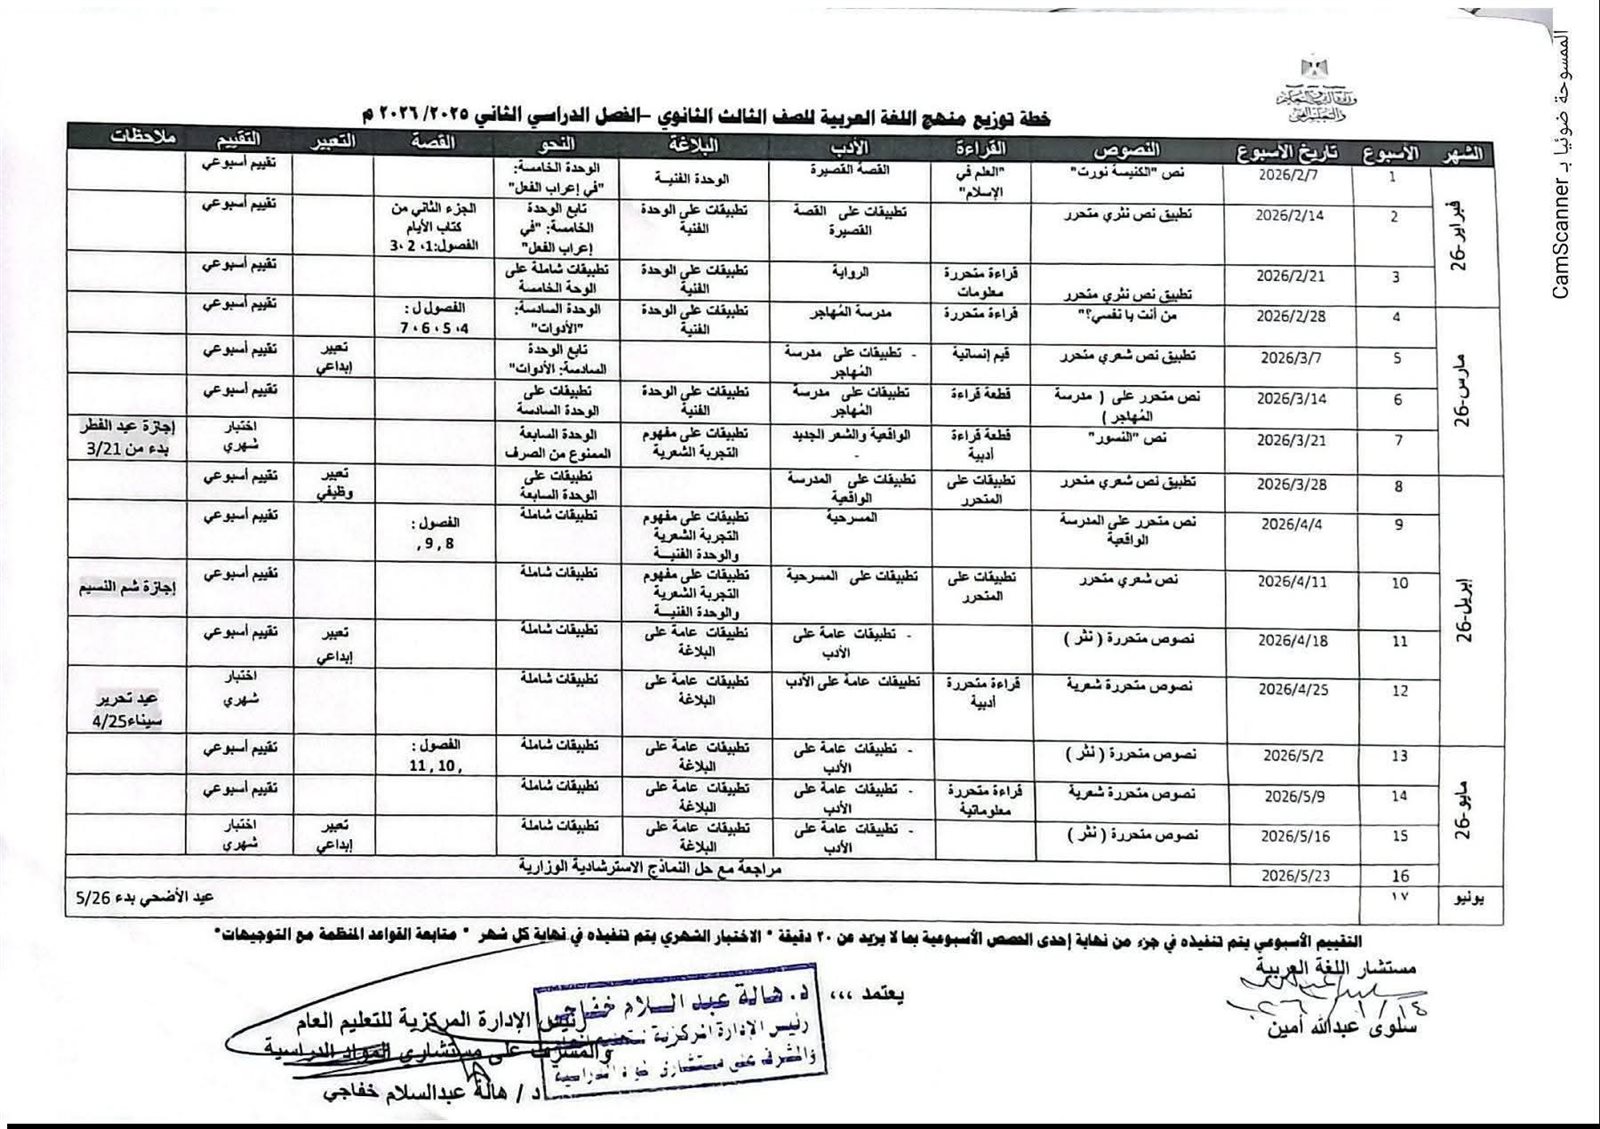 وزارة التربية والتعليم
والتعليم الفني
خطة توزيع منهج اللغة العربية للصف الثالث الثانوي –الفصل الدراسي الثاني ٢٠٢٥/ ٢٠٢٦ م
الشهر الأسبوع تاريخ الأسبوع النصوص القراءة الأدب البلاغة النحو القصة التعبير التقييم ملاحظات
فبراير-26
1 2026/2/7 نص "الكنيسة نورت" "العلم في الإسلام" القصة القصيرة الوحدة الفنيـة الوحدة الخامسة: "في إعراب الفعل" تقييم أسبوعي
2 2026/2/14 تطبيق نص نثري متحرر تطبيقات على القصة القصيرة تطبيقات على الوحدة الفنية تابع الوحدة الخامسة: "في إعراب الفعل" الجزء الثاني من كتاب الأيام الفصول:1، 2 ،3 تقييم أسبوعي
3 2026/2/21 تطبيق نص نثري متحرر قراءة متحررة معلومات الرواية تطبيقات على الوحدة الفنية تطبيقات شاملة على الوحة الخامسة تقييم أسبوعي
مارس-26
4 2026/2/28 من أنت يا نفسي؟" قراءة متحررة مدرسة المُهاجر تطبيقات على الوحدة الفنية الوحدة السادسة: "الأدوات" الفصول ل : 4، 5 ، 6 ، 7 تقييم أسبوعي
5 2026/3/7 تطبيق نص شعري متحرر قيم إنسانية - تطبيقات على مدرسة المُهاجر تابع الوحدة السادسة: الأدوات" تعبير إبداعي تقييم أسبوعي
6 2026/3/14 نص متحرر على ( مدرسة المُهاجر ) قطعة قراءة تطبيقات على مدرسة المُهاجر تطبيقات على الوحدة الفنية تطبيقات على الوحدة السادسة تقييم أسبوعي
7 2026/3/21 نص "النسور" قطعة قراءة أدبية الواقعية والشعر الجديد - تطبيقات على مفهوم التجربة الشعرية الوحدة السابعة الممنوع من الصرف اختبار شهري إجازة عيد الفطر بدء من 3/21
إبريل-26
8 2026/3/28 تطبيق نص شعري متحرر تطبيقات على المتحرر تطبيقات على المدرسة الواقعية تطبيقات على الوحدة السابعة تعبير وظيفي تقييم أسبوعي
9 2026/4/4 نص متحرر على المدرسة الواقعية المسرحية تطبيقات على مفهوم التجربة الشعرية والوحدة الفنيـة تطبيقات شاملة الفصول : 8 , 9 , تقييم أسبوعي
10 2026/4/11 نص شعري متحرر تطبيقات على المتحرر تطبيقات على المسرحية تطبيقات على مفهوم التجربة الشعرية والوحدة الفنيـة تطبيقات شاملة تقييم أسبوعي إجازة شم النسيم
11 2026/4/18 نصوص متحررة ( نثر ) - تطبيقات عامة على الأدب تطبيقات عامة على البلاغة تطبيقات شاملة تعبير إبداعي تقييم أسبوعي
12 2026/4/25 نصوص متحررة شعرية قراءة متحررة أدبية تطبيقات عامة على الأدب تطبيقات عامة على البلاغة تطبيقات شاملة اختبار شهري عيد تحرير سيناء4/25
مايو-26
13 2026/5/2 نصوص متحررة ( نثر ) - تطبيقات عامة على الأدب تطبيقات عامة على البلاغة تطبيقات شاملة الفصول : , 10 , 11 تقييم أسبوعي
14 2026/5/9 نصوص متحررة شعرية قراءة متحررة معلوماتية - تطبيقات عامة على الأدب تطبيقات عامة على البلاغة تطبيقات شاملة تقييم أسبوعي
15 2026/5/16 نصوص متحررة ( نثر ) - تطبيقات عامة على الأدب تطبيقات عامة على البلاغة تطبيقات شاملة تعبير إبداعي اختبار شهري
16 2026/5/23 مراجعة مع حل النماذج الاسترشادية الوزارية
يونيو ١٧ عيد الأضحي بدء 5/26
التقييم الأسبوعي يتم تنفيذه في جزء من نهاية إحدى الحصص الأسبوعية بما لا يزيد عن ٢٠ دقيقة * الاختبار الشهري يتم تنفيذه في نهاية كل شهر * متابعة القواعد المنظمة مع التوجيهات*
مستشار اللغة العربية
سلوى عبدالله أمين
يعتمد ،،،
رئيس الإدارة المركزية للتعليم العام
والمشرف على مستشاري المواد الدراسية
د / هالة عبدالسلام خفاجي
د. هالة عبد السلام خفاجي
رئيس الإدارة المركزية
والمشرف على مستشاري المواد الدراسية
الممسوحة ضوئيا بـ CamScanner